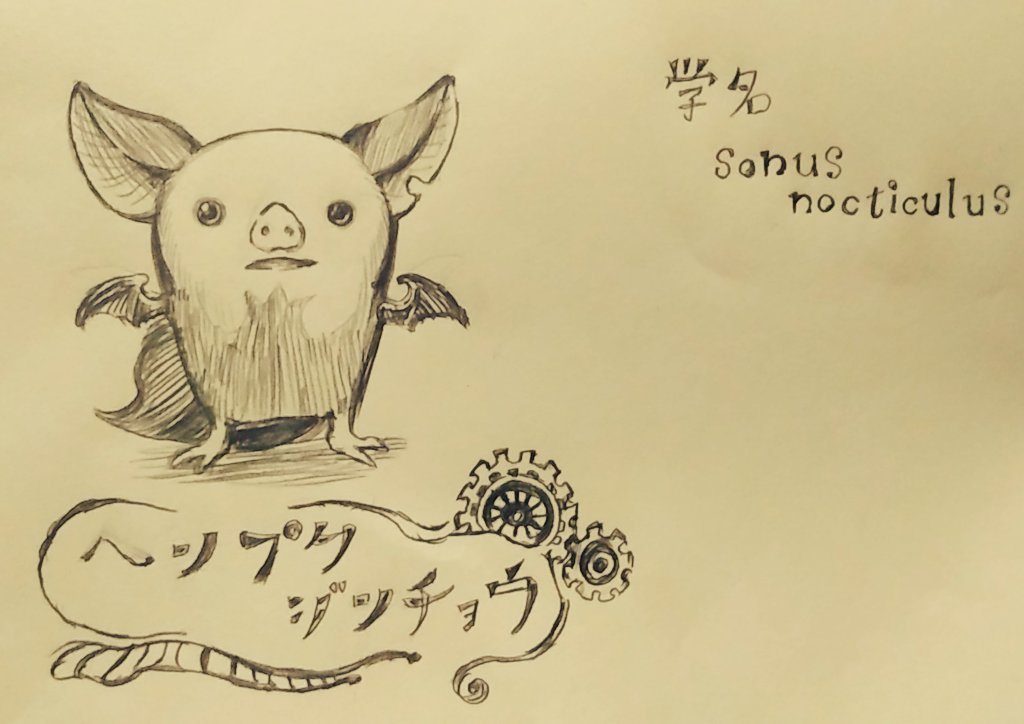 学名
sonus
nocticulus
ヘンプク
ジンチョウ